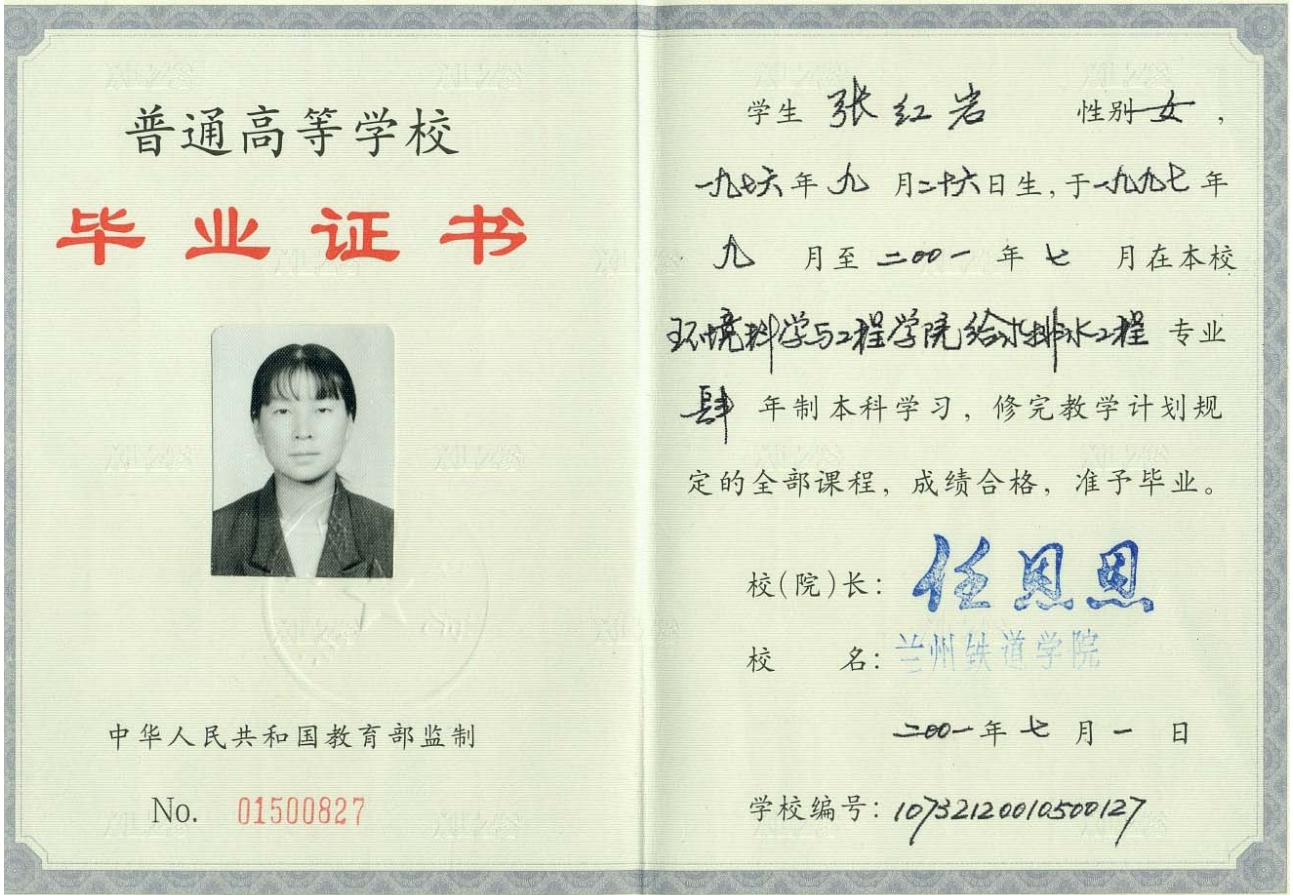 普通高等学校
毕业证书
中华人民共和国教育部监制
No. 01500827
学生 张红岩 性别 女,
一九七六年九月二十六日生,于一九九七年
九月至二〇〇一年七月在本校
环境科学与工程学院给水排水工程专业
肆年制本科学习,修完教学计划规
定的全部课程,成绩合格,准予毕业。
校(院)长: 任恩恩
校 名: 兰州铁道学院
二〇〇一年七月一日
学校编号: 10732120010500127